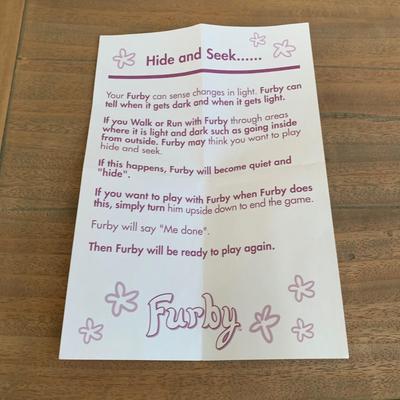 Hide and Seek......
Your Furby can sense changes in light. Furby can
tell when it gets dark and when it gets light.
If you Walk or Run with Furby through areas
where it is light and dark such as going inside
from outside. Furby may think you want to play
hide and seek.
If this happens, Furby will become quiet and
"hide".
If you want to play with Furby when Furby does
this, simply turn him upside down to end the game.
Furby will say "Me done".
Then Furby will be ready to play again.
Furby